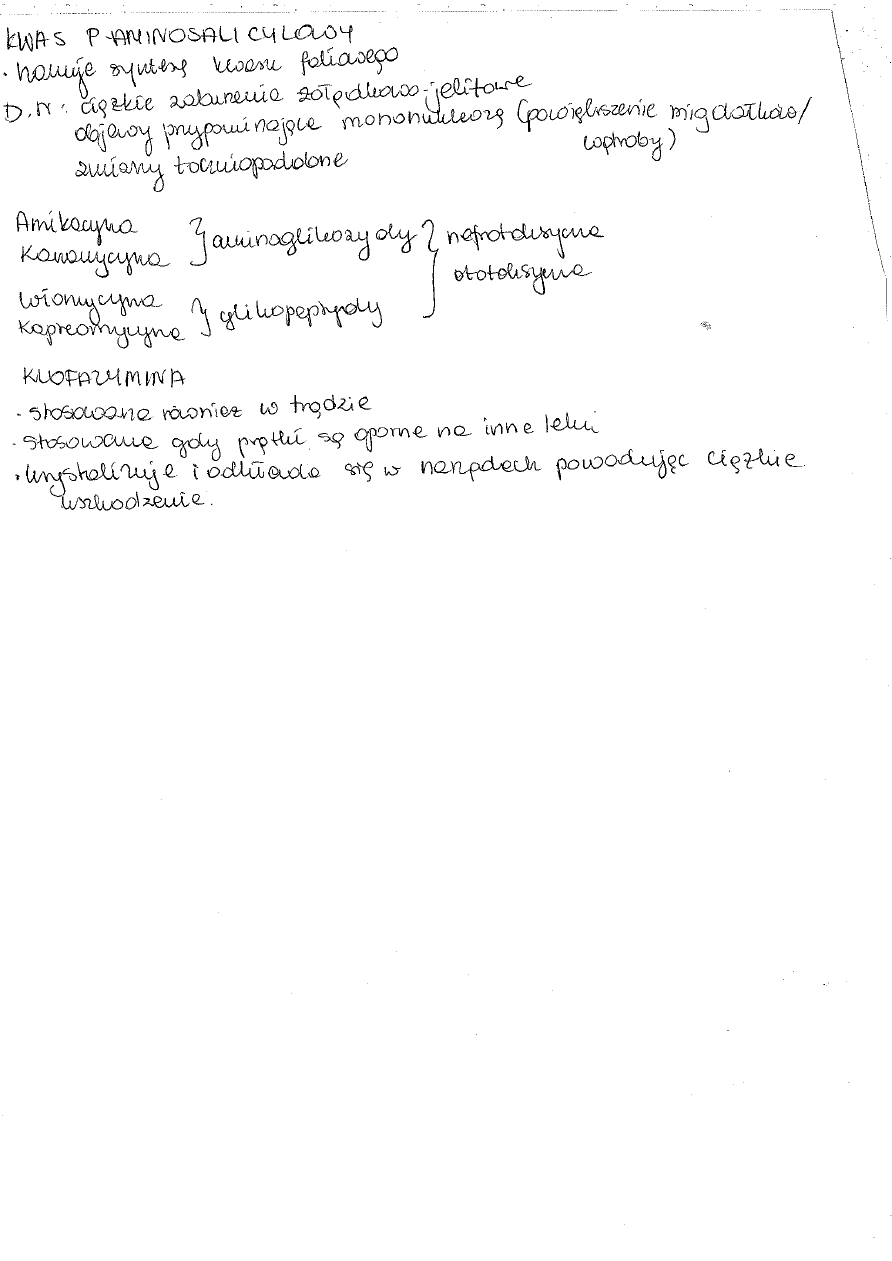 KWAS P-AMINOSALICYLOWY
· hamuje syntezę kwasu foliowego
D.N: ciężkie zaburzenia żołądkowo-jelitowe
objawy przypominające mononukleozę (powiększenie migdałków/
wątroby)
zmiany toczniopodobne
Amikacyna
Kanamycyna } aminoglikozydy } nefrotoksyczne
ototoksyczne
Wiomycyna
Kapreomycyna } glikopeptydy
KLOFAZYMINA
· stosowana również w trądzie
· stosowanie gdy prątki są oporne na inne leki
· krystalizuje i odkłada się w narządach powodując ciężkie
uszkodzenie.